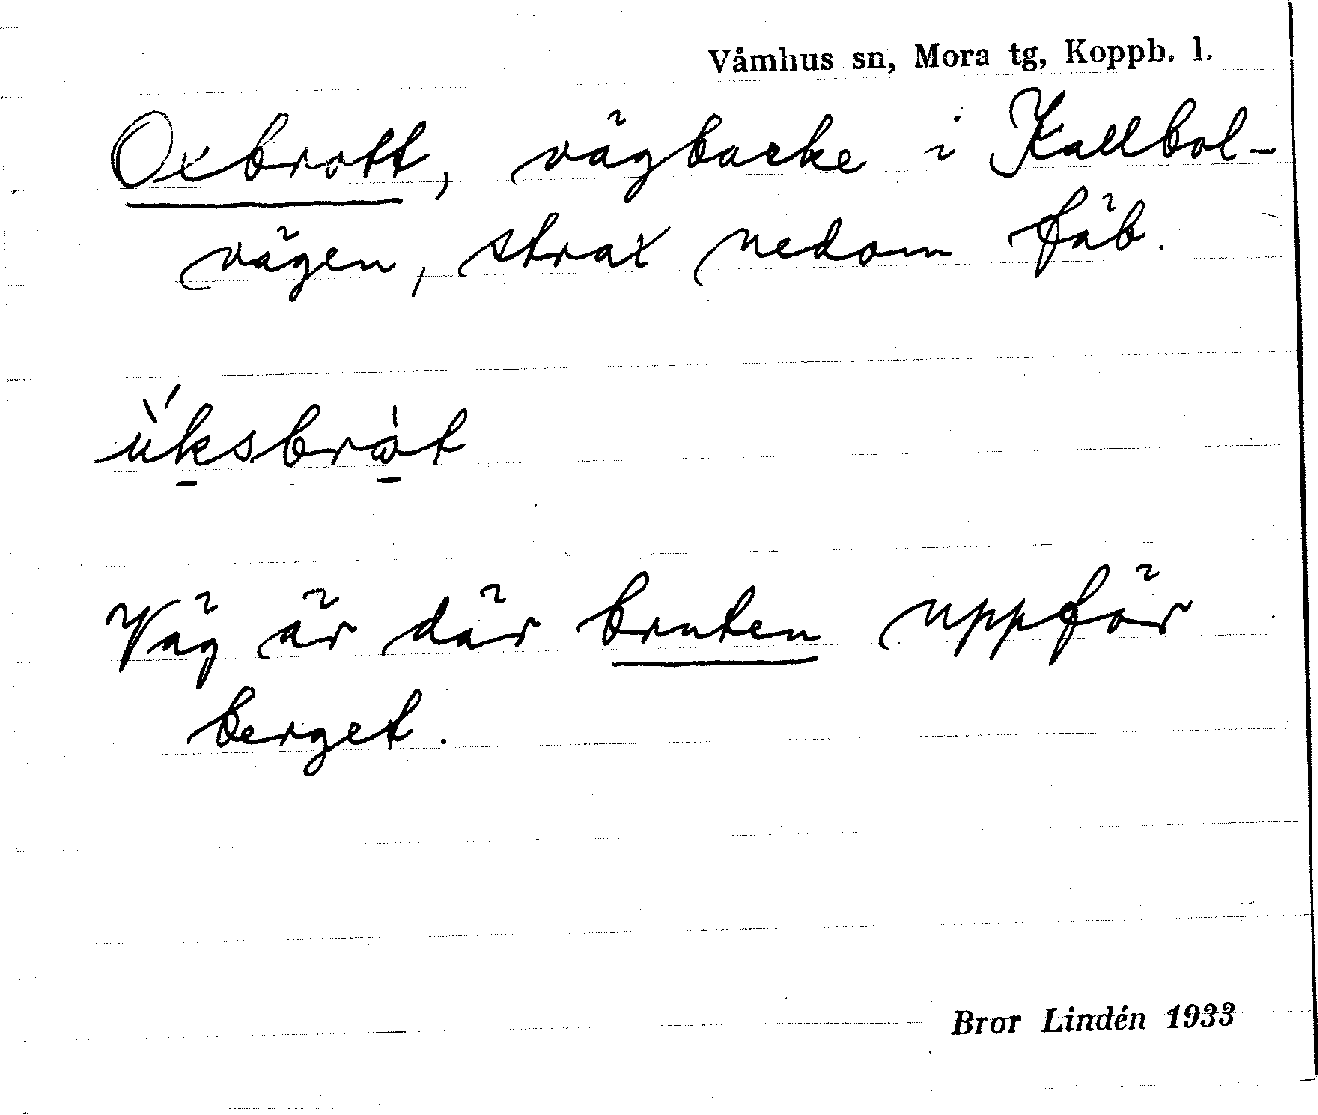 Våmhus sn, Mora tg, Koppb. l.
Oxbrott, vägbacke i Kallbol-
vägen, strax nedom fäb.
üksbròt
Väg är där bruten uppför
berget.
Bror Lindén 1933